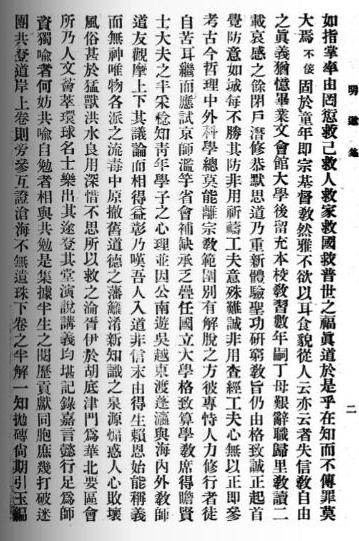 如指掌率由罔愆救己救人救家救國救普世之福眞道於是乎在知而不傳罪莫
大焉不佞固於童年即宗基督教然雅不欲以耳食貌從人云亦云者失信教自由
之眞義猶憶畢業文會館大學後留充本校教習數年嗣丁母艱辭職歸里教讀二
載哀感之餘閉戶潛修恭默思道乃重新體驗聖功研窮教旨仍由格致誠正起首
覺防意如城每不勝其防非用祈禱工夫意殊難誠非用查經工夫心無以正即參
考古今哲理中外科學總莫能離宗教範圍別有解脫之方彼專恃人力修行者徒
自苦耳繼而應試京師濫竽省會補缺承乏疊任國立大學格致算學教席得瞻賢
士大夫之丰采稔知青年學子之心理並因公南遊吳越東渡蓬瀛與海內外教師
道友觀摩上下其議論而相得益彰乃嘆吾人入道非信末由得生賴恩始能稱義
而無神唯物各派之流毒中原撤舊道德之藩籬淆新知識之泉源煽惑人心敗壞
風俗甚於猛獸洪水良用深惜不思所以救之淪胥伊於胡底津門爲華北要區會
所乃人文薈萃環球名士樂出其途登其堂演說講義均堪記錄嘉言懿行足爲師
資獨喻者何妨共喻自勉者相與共勉是集據半生之閱歷貢獻同胞庶幾打破迷
團共登道岸上卷則旁參互證滄海不無遺珠下卷之半解一知拋磚尙期引玉編
旁逋集
二